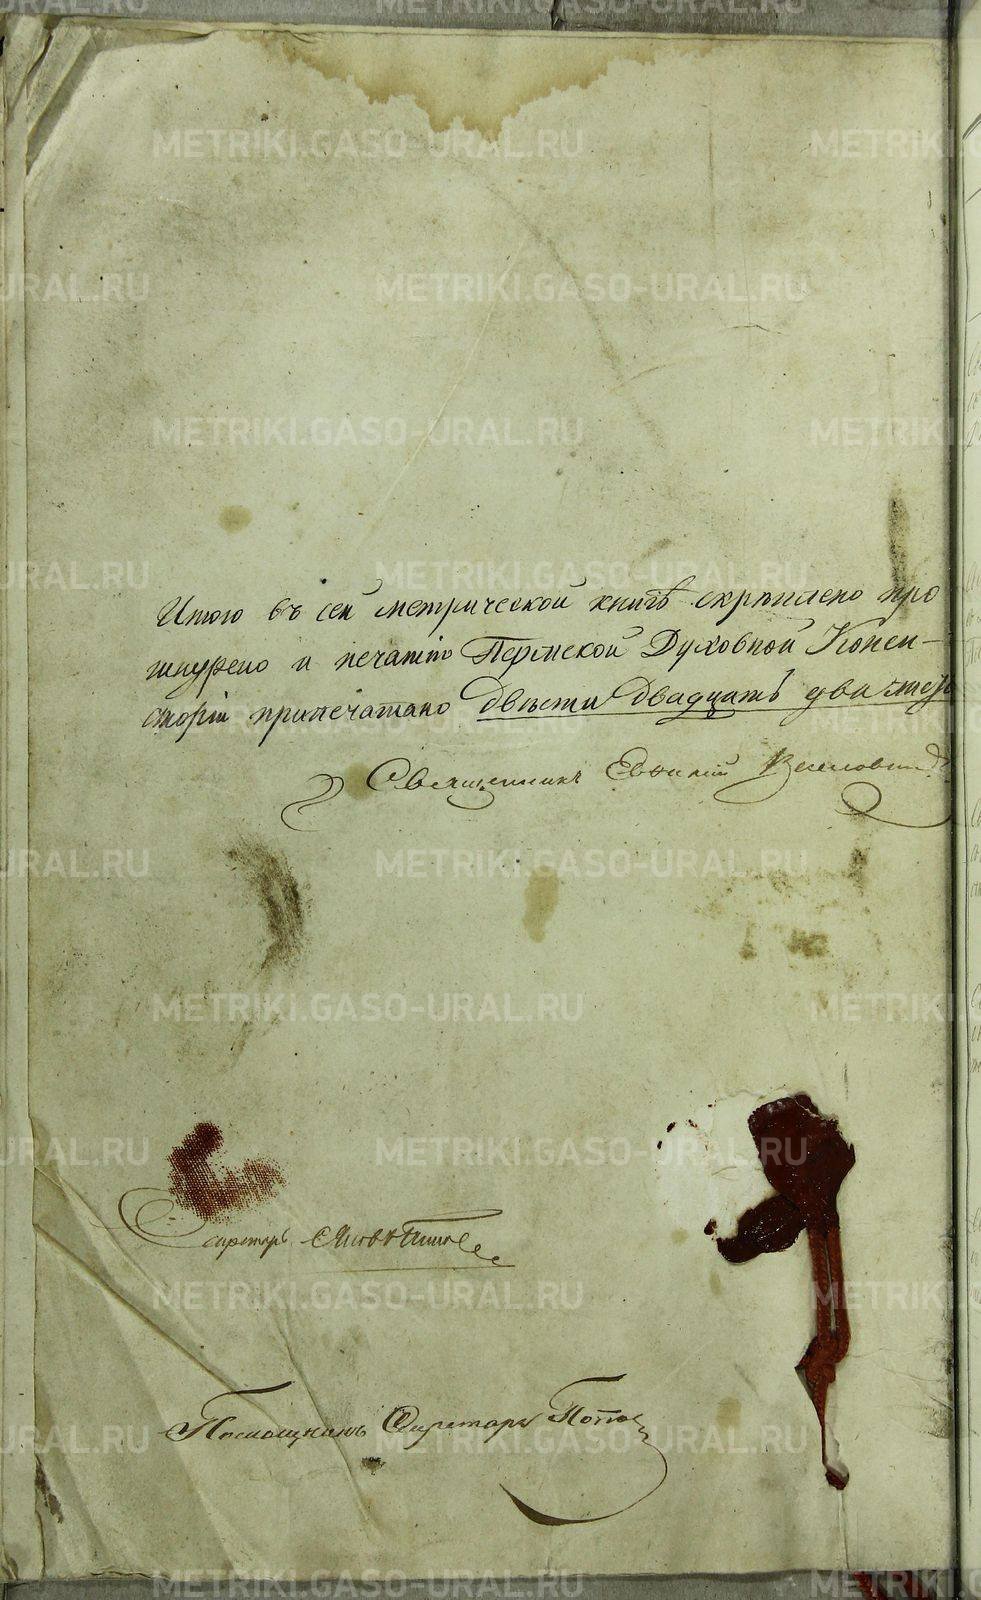 Итого въ сей метрической книгѣ скрѣплено про
шнурено и печатію Пермской Духовной Консис-
торіи припечатано двѣсти двадцать два листа
Священникъ Евѳимій
Секретарь
Помощникъ Секретаря Попов
METRIKI.GASO-URAL.RU